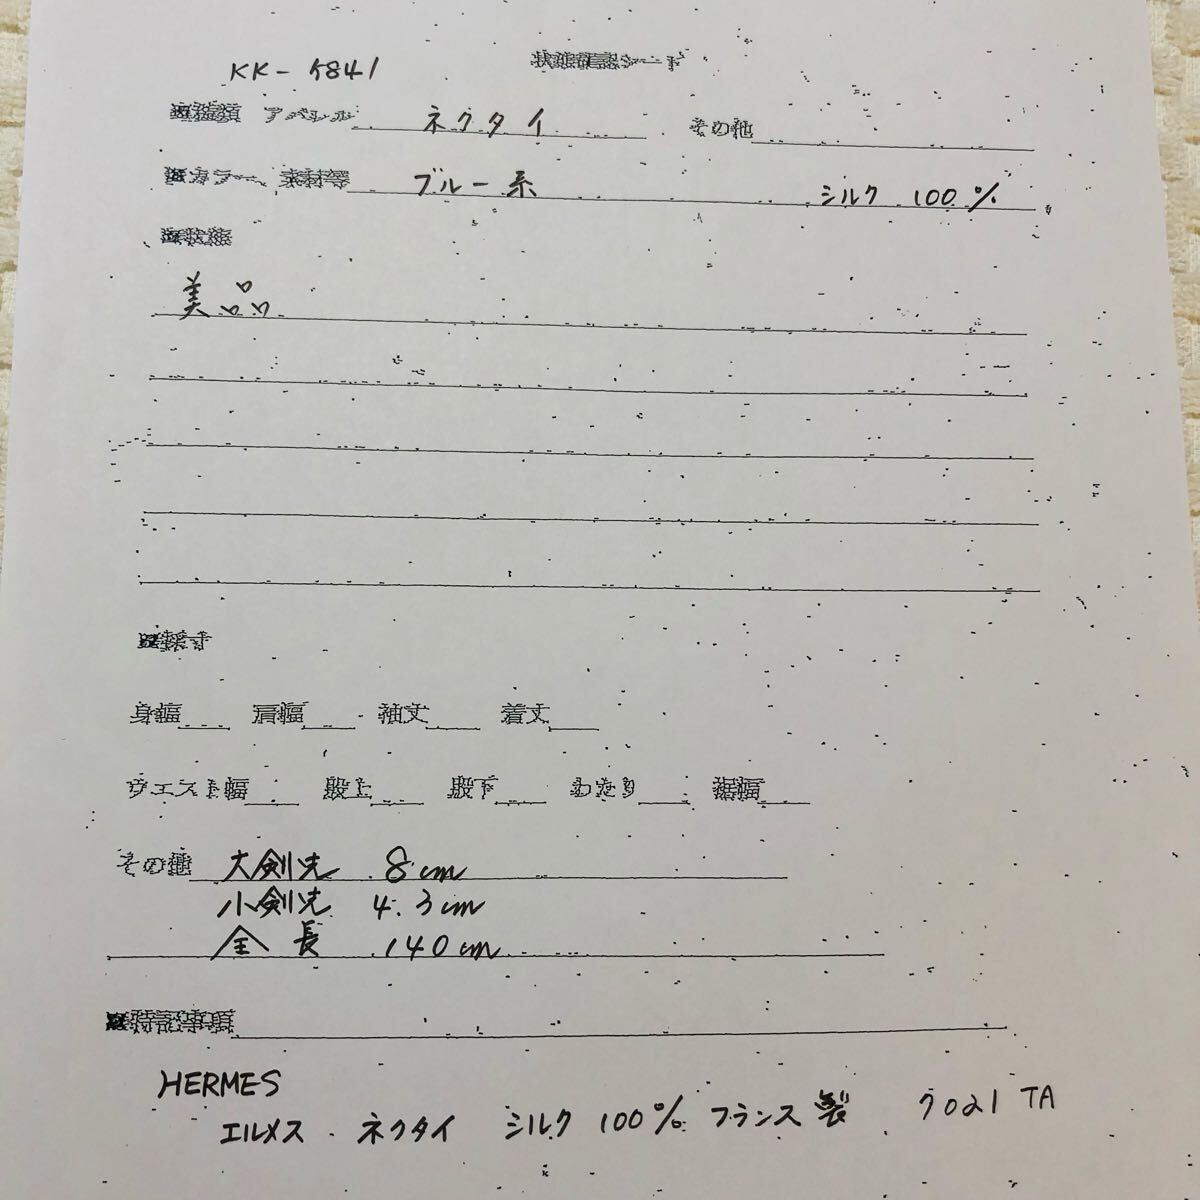 KK-5841
状態確認シード
※種類 アパレル ネクタイ その他
※カラー、素材等 ブルー系 シルク 100%
※状態
美品
※採寸
身幅 肩幅 袖丈 着丈
ウエスト幅 股上 股下 わたり 裾幅
その他 大剣先 8cm
小剣先 4.3cm
全長 140cm
※特記事項
HERMES
エルメス ネクタイ シルク 100% フランス製 7021 TA